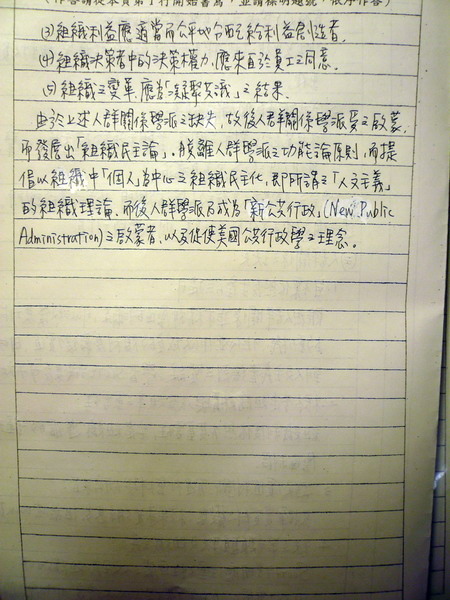 (作答請從本頁第1行開始書寫，並請標明題號，依序作答)
(3)組織利益應適當而公平地分配給利益創造者。
(4)組織決策者中的決策權力，應來自於員工之同意。
(5)組織之變革，應為「凝聚共識」之結果。
由於上述人群關係學派之缺失，故後人群關係學派受之啟蒙，
而發展出「組織民主論」，脫離人群學派之功能論原則，而提
倡以組織中「個人」為中心之組織民主化，即所謂之「人文主義」
的組織理論，而後人群學派乃成為「新公共行政」(New Public
Administration)之啟蒙者，以及促使美國公共行政學之理念。